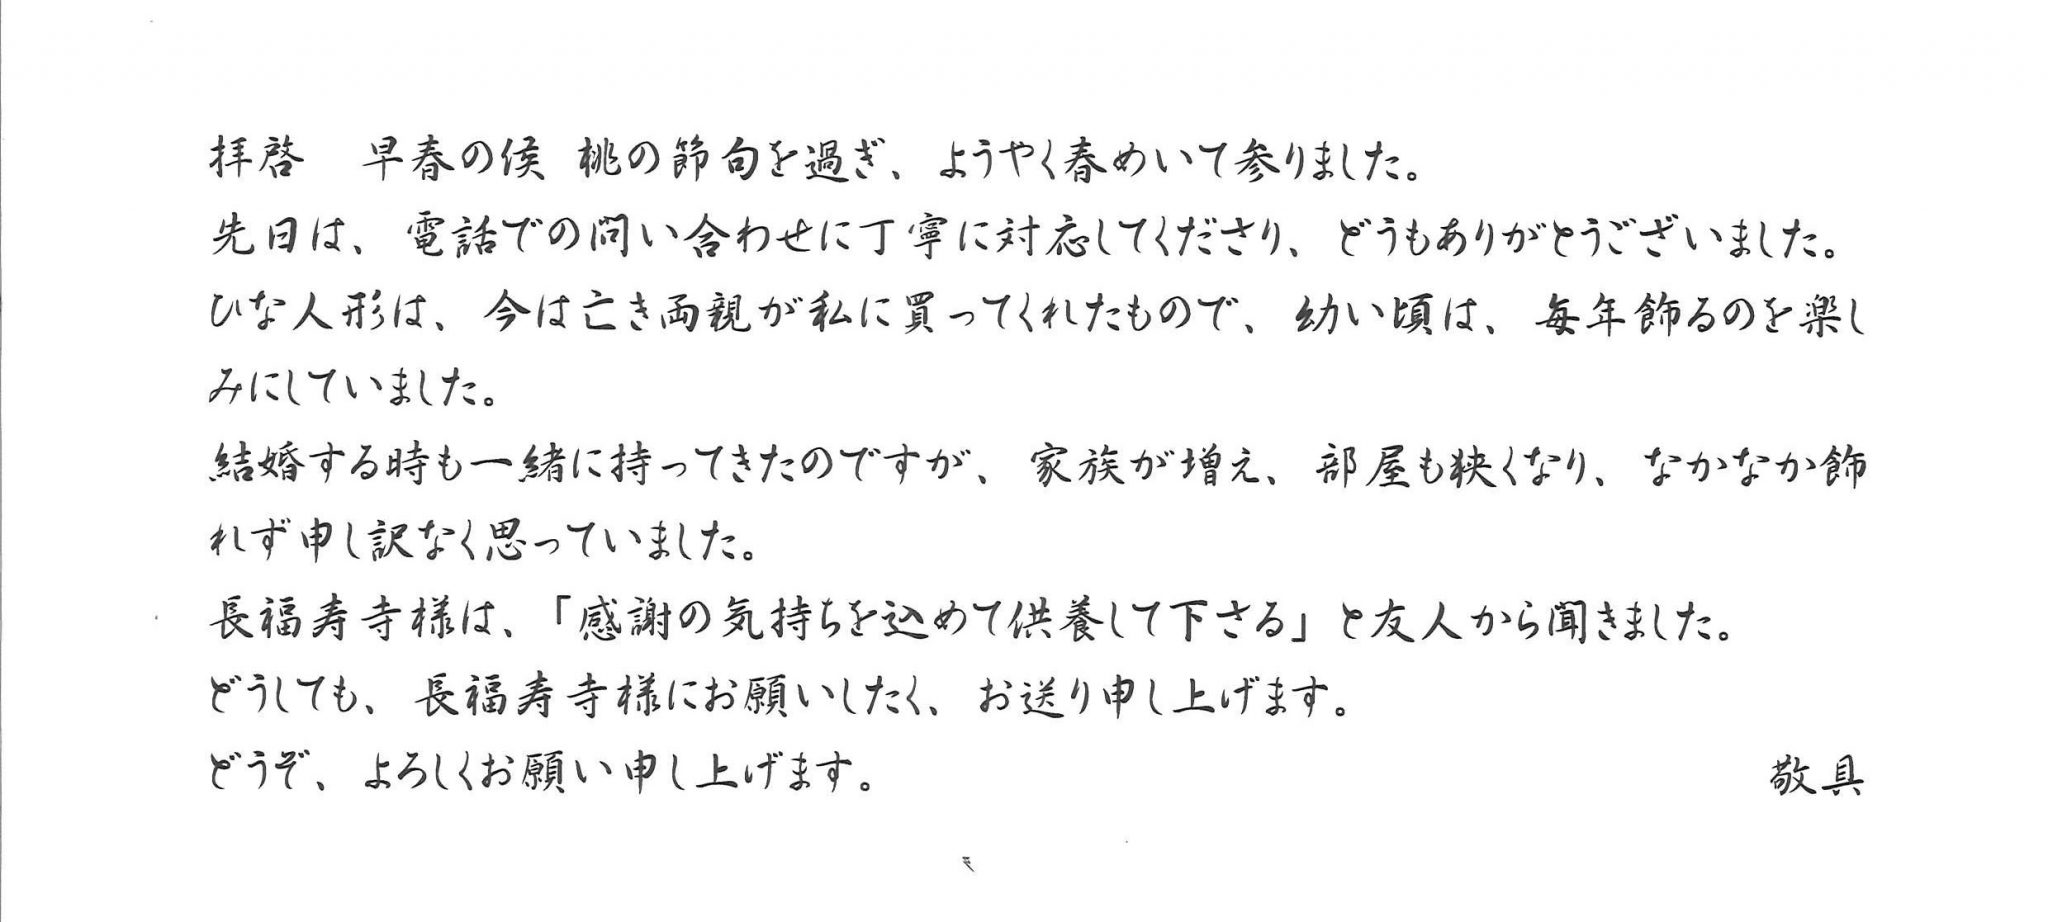 拝啓　早春の候 桃の節句を過ぎ、ようやく春めいて参りました。
先日は、電話での問い合わせに丁寧に対応してくださり、どうもありがとうございました。
ひな人形は、今は亡き両親が私に買ってくれたもので、幼い頃は、毎年飾るのを楽し
みにしていました。
結婚する時も一緒に持ってきたのですが、家族が増え、部屋も狭くなり、なかなか飾
れず申し訳なく思っていました。
長福寿寺様は、「感謝の気持ちを込めて供養して下さる」と友人から聞きました。
どうしても、長福寿寺様にお願いしたく、お送り申し上げます。
どうぞ、よろしくお願い申し上げます。　敬具